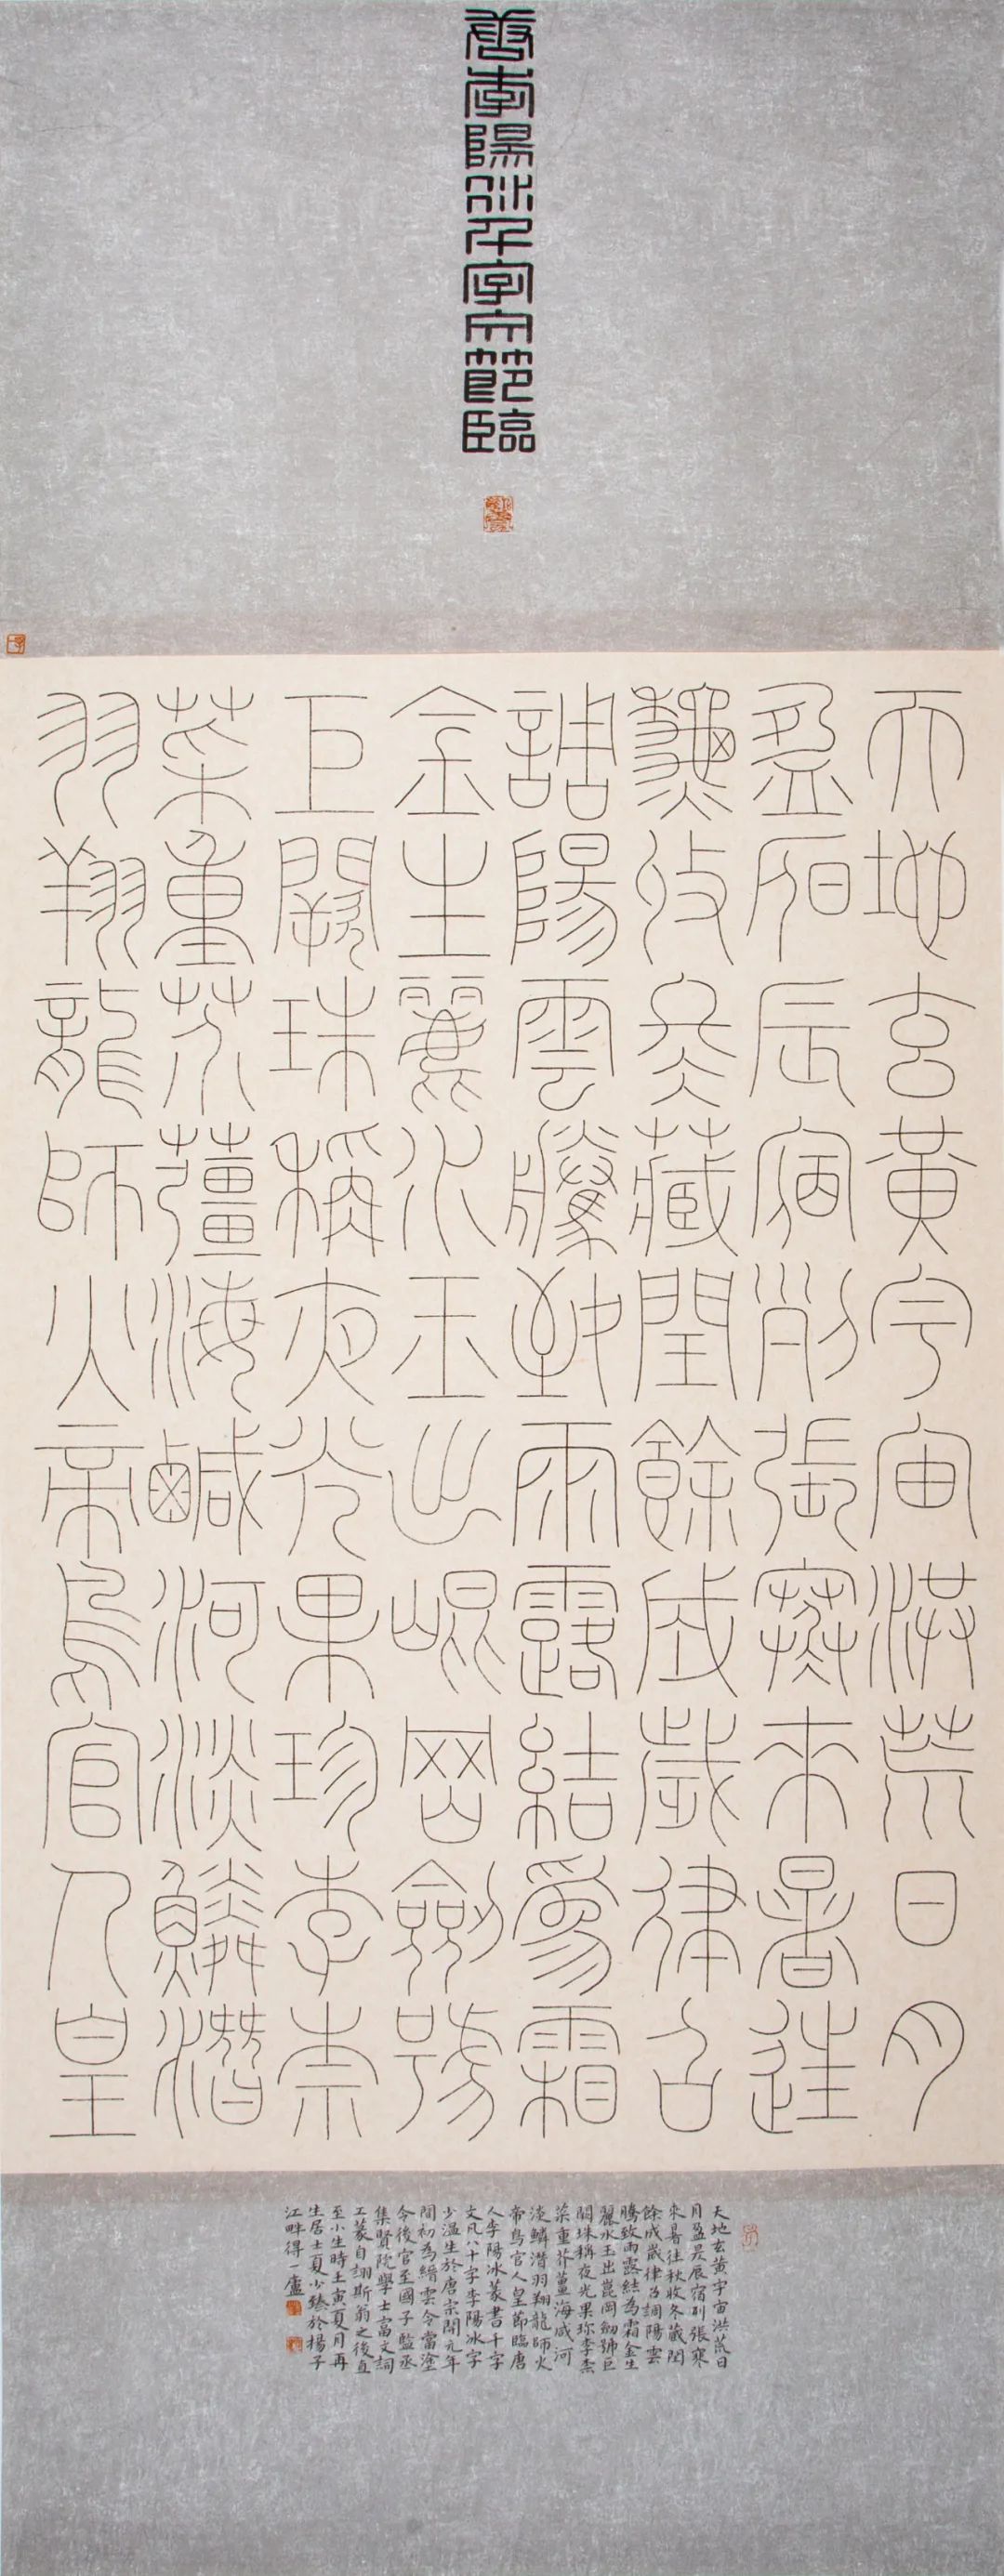 唐李陽冰千字文節臨
天地玄黃宇宙洪荒日月
盈昃辰宿列張寒來暑往
秋收冬藏閏餘成歲律召
調陽雲騰致雨露結為霜
金生麗水玉出崐岡劒號
巨闕珠稱夜光果珍李柰
菜重芥薑海鹹河淡鱗潛
羽翔龍師火帝鳥官人皇
天地玄黃宇宙洪荒日
月盈昃辰宿列張寒
來暑往秋收冬藏閏
餘成歲律召調陽雲
騰致雨露結為霜金生
麗水玉出崑岡劒號巨
闕珠稱夜光果珍李柰
菜重芥薑海咸河
淡鱗潛羽翔龍師火
帝鳥官人皇節臨唐
人李陽冰篆書千字
文凡八十字李陽冰字
少溫生於唐宗開元年
間初為縉雲令當塗
令後官至國子監丞
集賢院學士富文詞
工篆自詡斯翁之後直
至小生時壬寅夏月再
生居士夏少臻於揚子
江畔得一廬